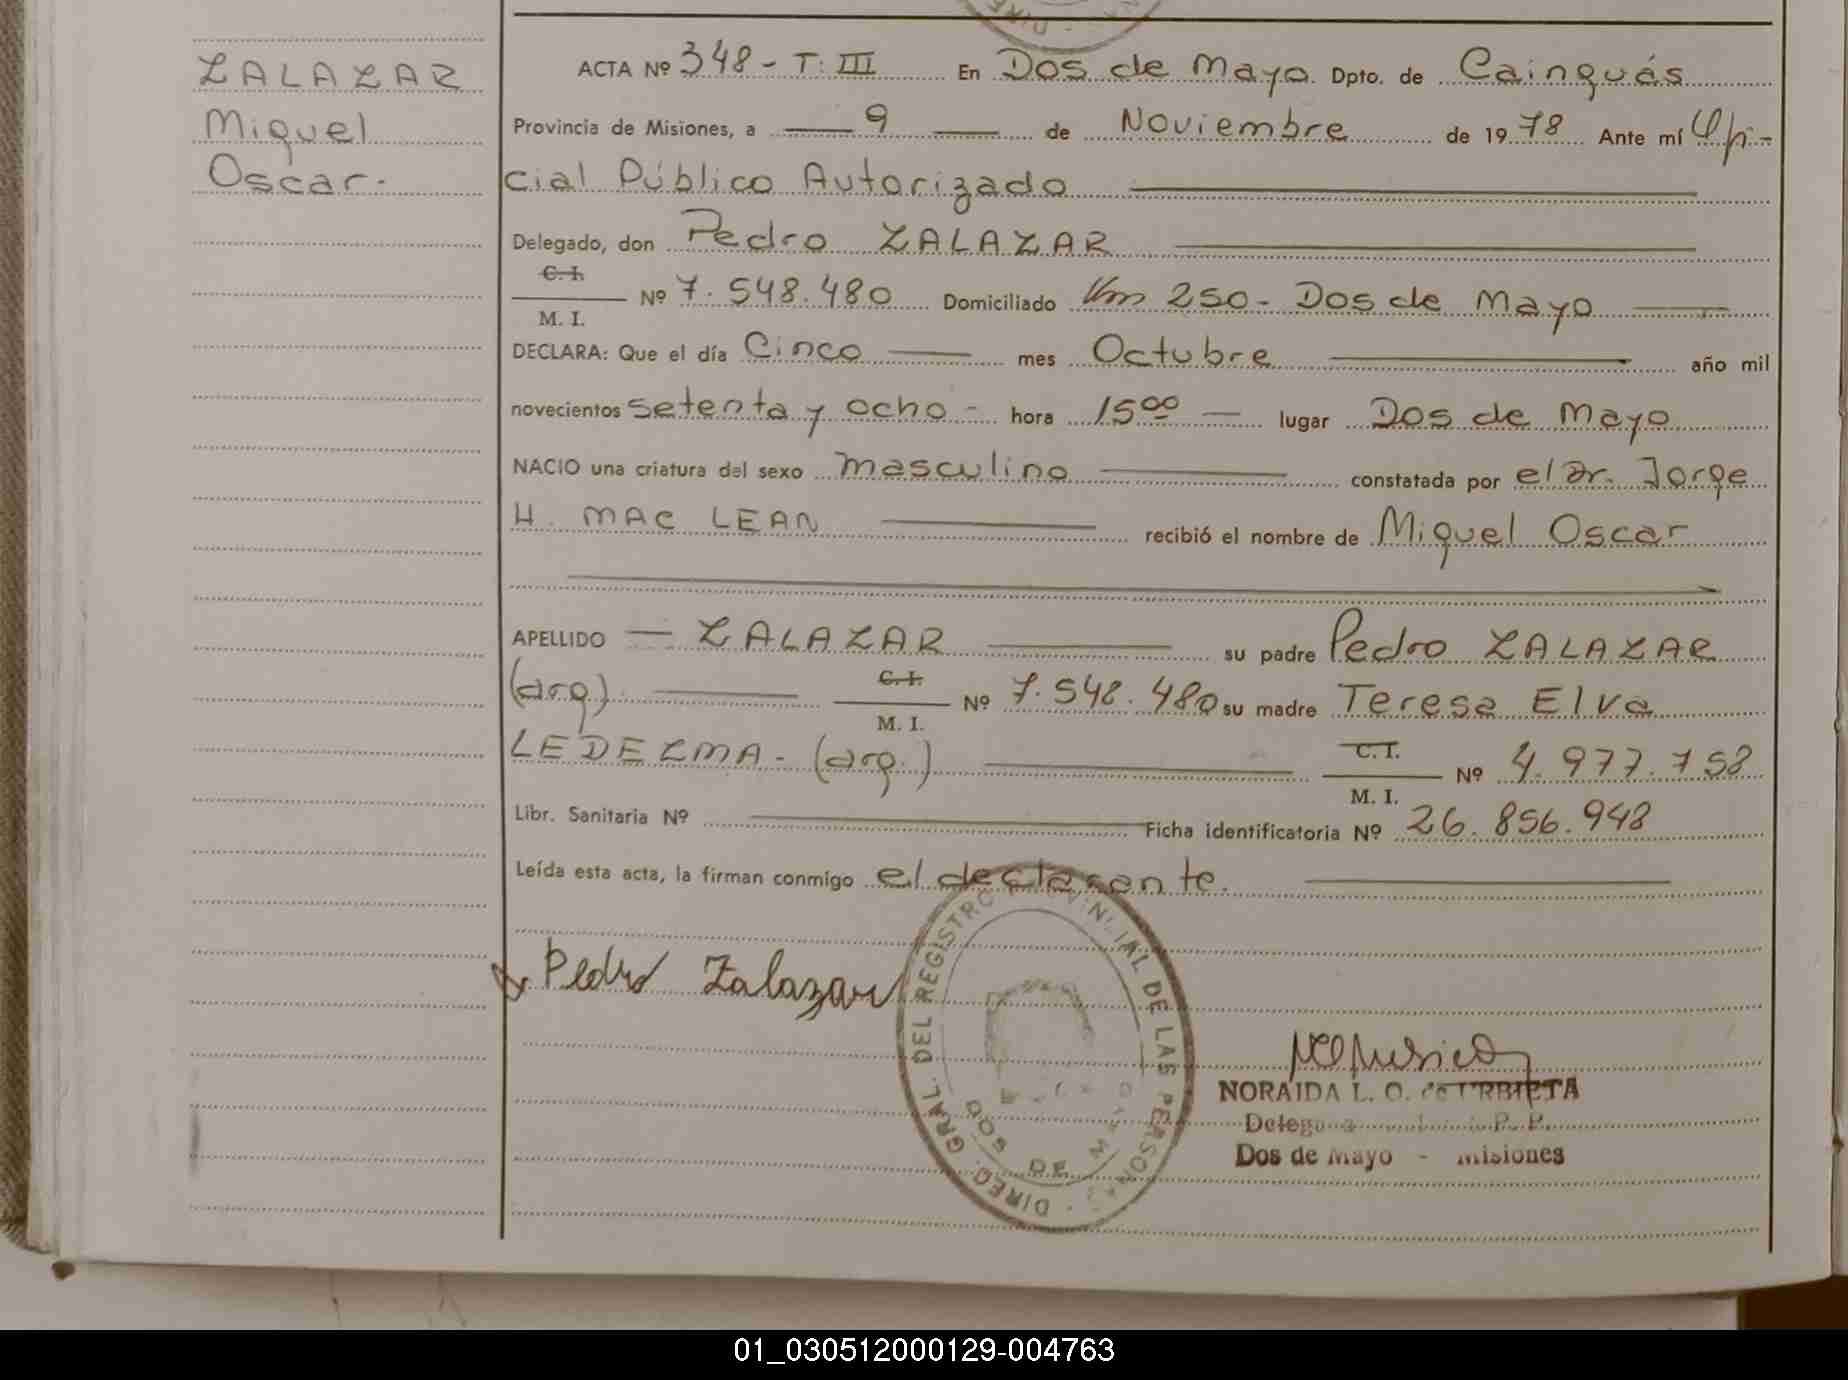 ZALAZAR
Miguel
Oscar.
ACTA Nº 348 - T: III En Dos de Mayo. Dpto. de Cainguás
Provincia de Misiones, a 9 de Noviembre de 1978 Ante mí Ofi-
cial Público Autorizado
Delegado, don Pedro ZALAZAR
C. I.
M. I.
Nº 7.548.480 Domiciliado Km 250 - Dos de Mayo
DECLARA: Que el día Cinco mes Octubre año mil
novecientos setenta y ocho - hora 15 00 lugar Dos de Mayo
NACIO una criatura del sexo masculino constatada por el Dr. Jorge
H. MAC LEAN recibió el nombre de Miguel Oscar
APELLIDO ZALAZAR su padre Pedro ZALAZAR
(arg). C. I. M. I. Nº 7.548.480 su madre Teresa Elva
LEDEZMA - (arg.) C. I. M. I. Nº 4.977.758
Libr. Sanitaria Nº Ficha identificatoria Nº 26.856.948
Leída esta acta, la firman conmigo el declarante.
Pedro Zalazar
DIREC. GRAL. DEL REGISTRO PROVINCIAL DE LAS PERSONAS
DOS DE MAYO
NORAIDA L. O. de URBIETA
Dos de Mayo - Misiones
01_030512000129-004763